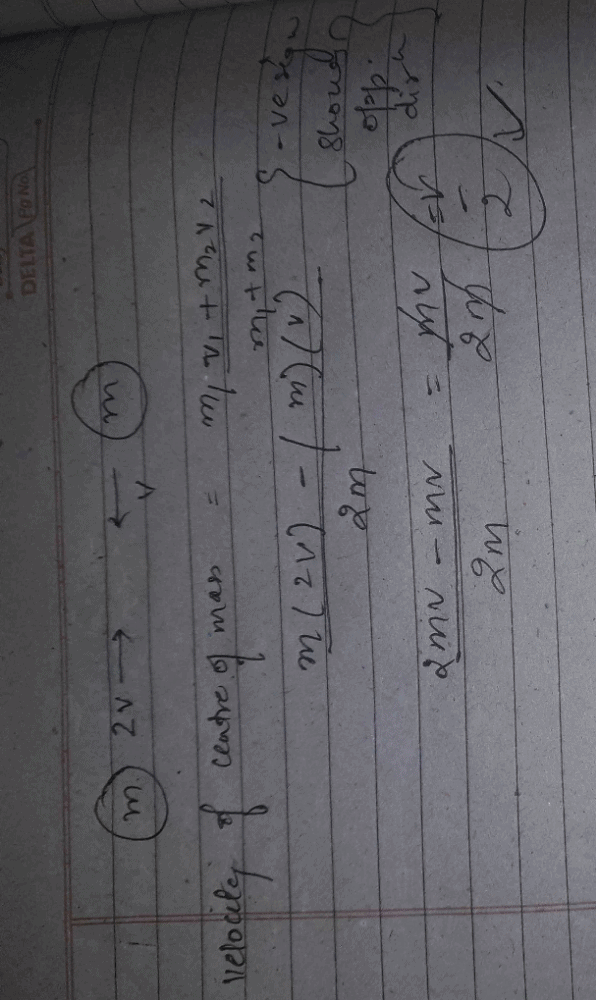 DELTA Pg No
m 2v → ← v m
velocity of centre of mass = m1 v1 + m2 v2 / m1 + m2
m(2v) - (m)(v) / 2m {-ve sign shows opp. dirn}
2mv - mv / 2m = mv / 2m = v / 2